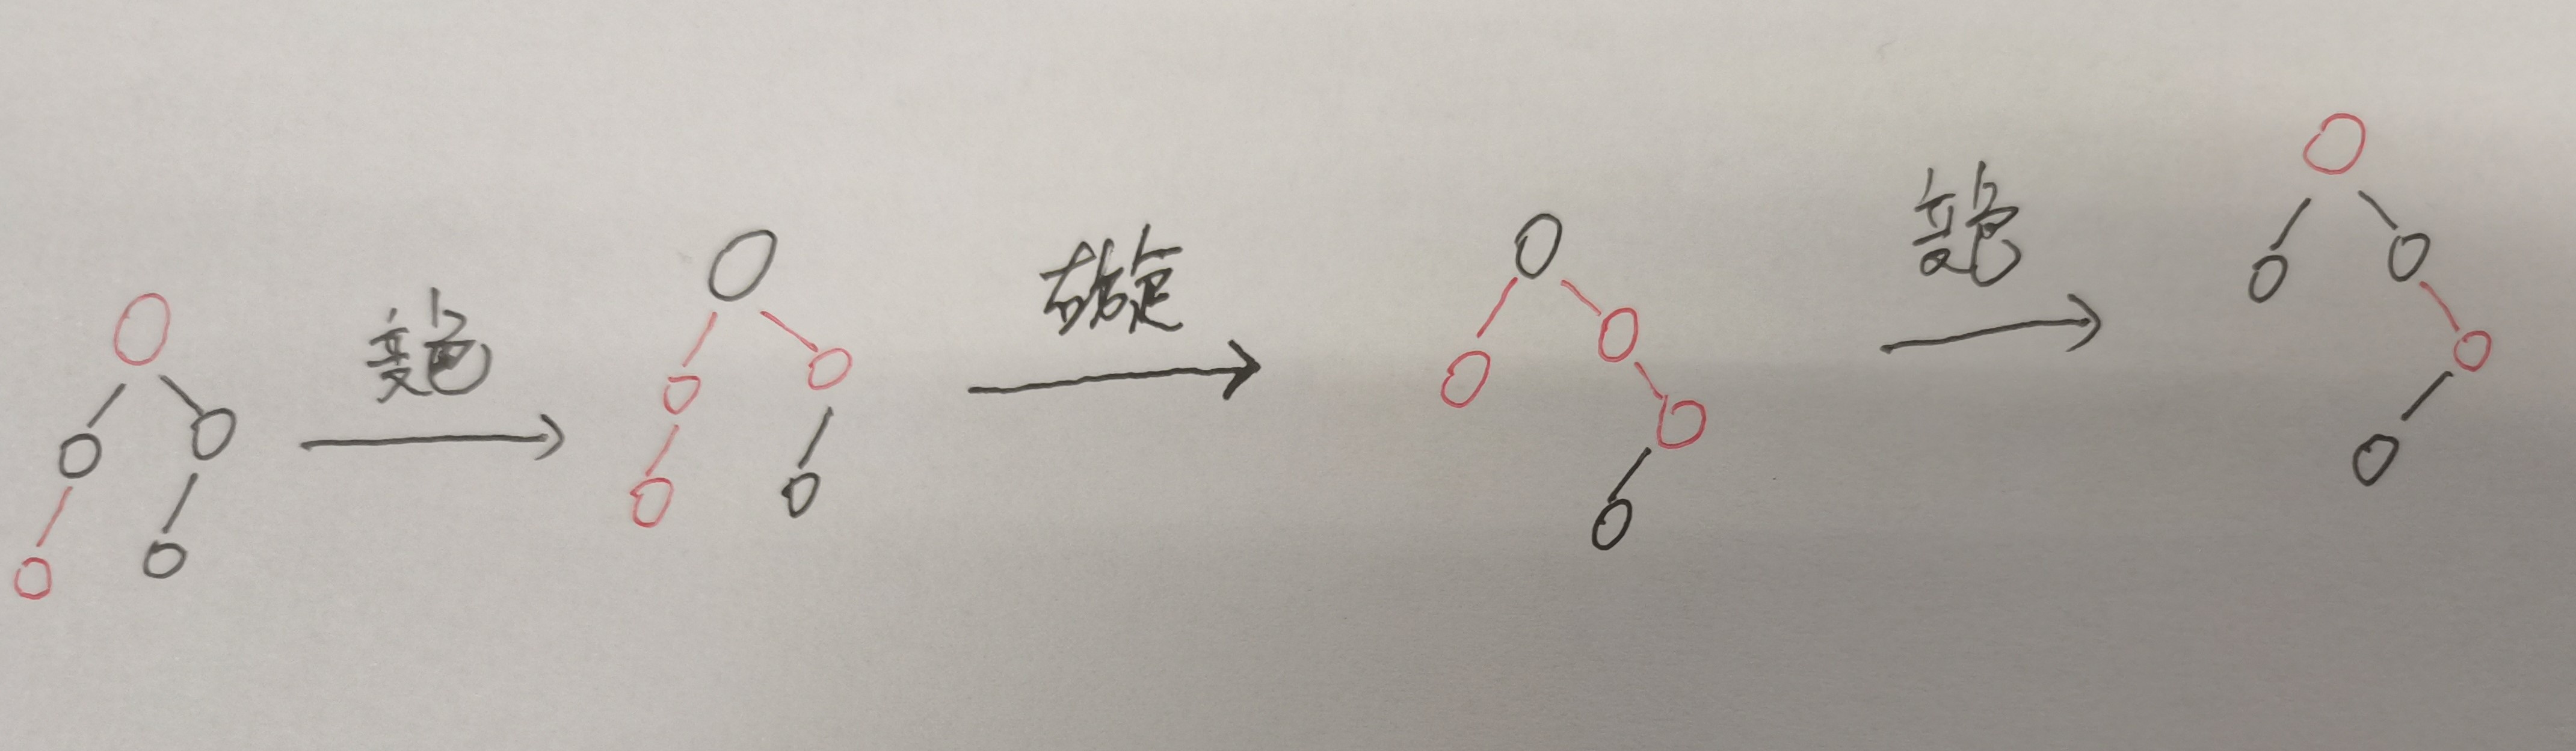 变色
右旋
变色